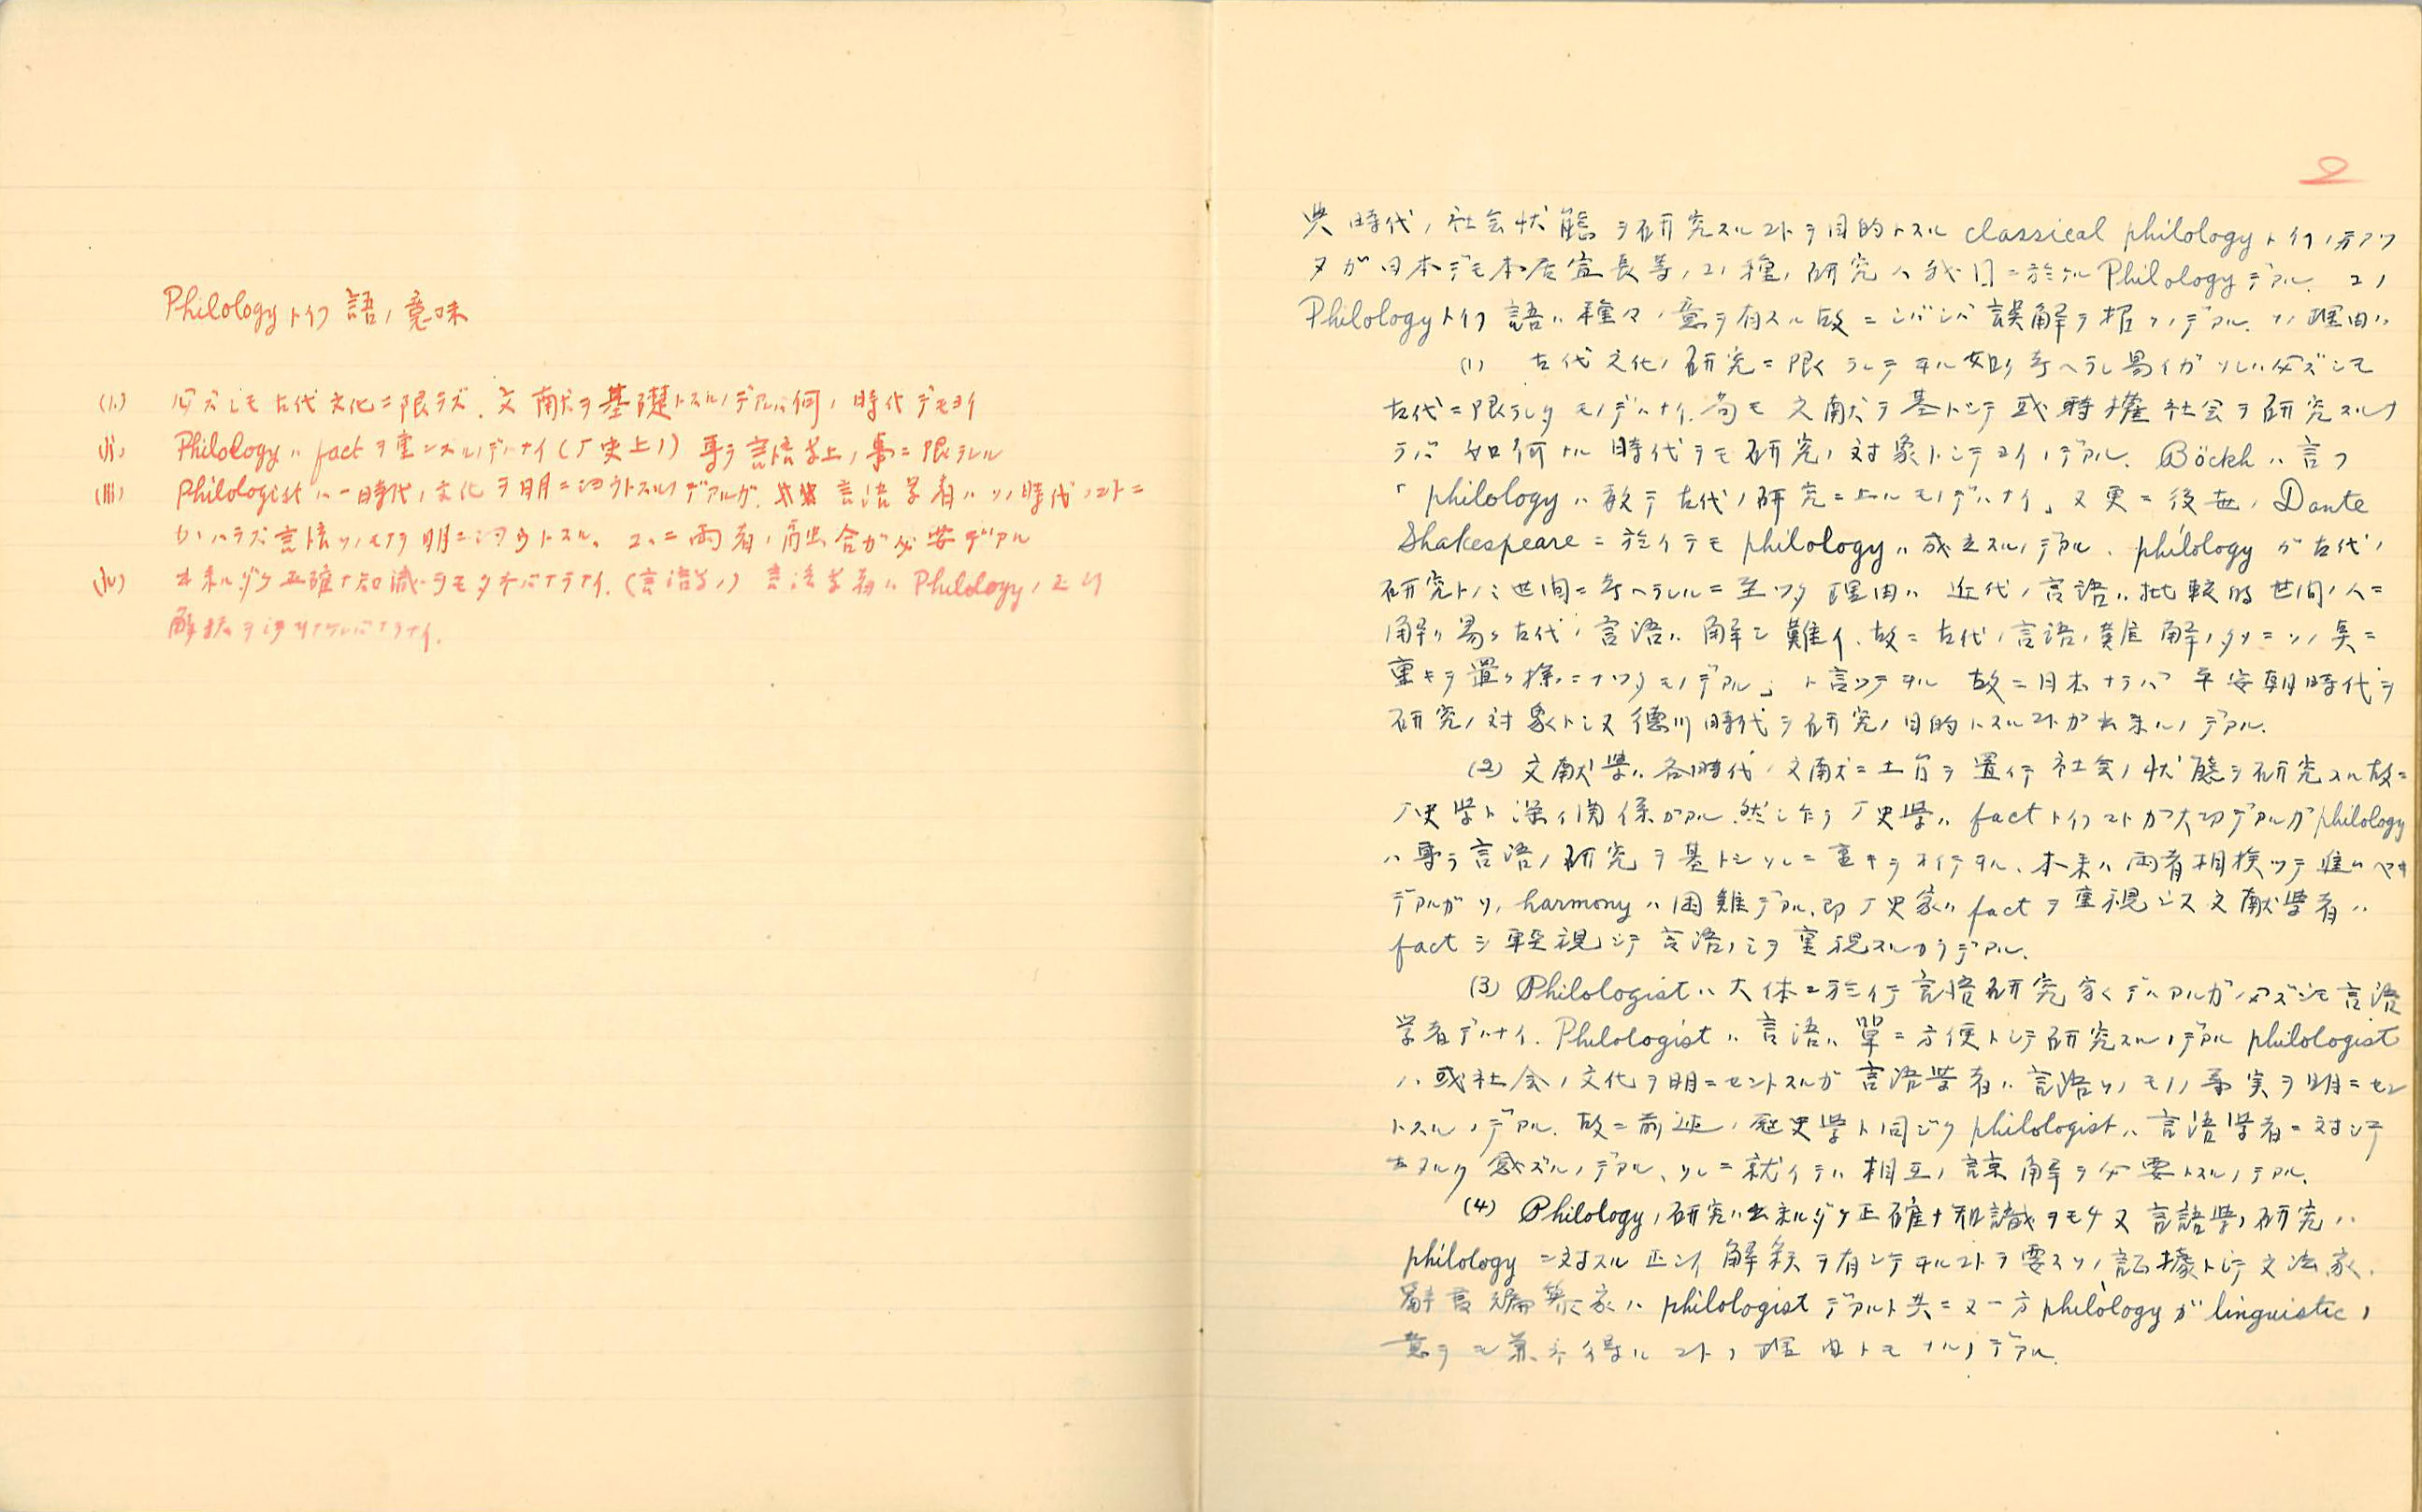 Philologyトイフ語ノ意味
(I.) 必ズシモ古代文化ニ限ラズ.文献ヲ基礎トスルノデアレバ何ノ時代デモヨイ
(II) Philologyハfactヲ重ンズルノデハナイ(厂史上ノ)専ラ言語学上ノ事ニ限ラレル
(III) Philologistハ一時代ノ文化ヲ明ニシヤウトスルノデアルガ.言語学者ハソノ時代ノコトニ
カヽハラズ言語ソノモノヲ明ニシヤウトスル。コヽニ両者ノ融合ガ必要デアル
(IV) 出来ルダケ正確ナ知識ヲモタネバナラナイ.(言語学ノ)言語学者ハPhilologyノ正シイ
解釈ヲ得ナケレバナラナイ.
2
典時代ノ社会状態ヲ研究スルコトヲ目的トスルclassical philologyトイフノデアツ
タガ日本デモ本居宣長等ノコノ種ノ研究ハ我国ニ於ケルPhilologyデアル.コノ
Philologyトイフ語ハ種々ノ意ヲ有スル故ニシバシバ誤解ヲ招クノデアル.ソノ理由ハ
(1) 古代文化ノ研究ニ限ラレテヰル如ク考ヘラレ易イガソレハ必ズシモ
古代ニ限ラレタモノデハナイ.苟モ文献ヲ基トシテ或時擢社会ヲ研究スルナ
ラバ如何ナル時代デモ研究ノ対象トシテヨイノデアル.Böckhハ言フ
「philologyハ敢テ古代ノ研究ニ止ルモノデハナイ」又更ニ後世ノDante
Shakespeareニ於イテモphilologyハ成立スルノデアル.philologyガ古代ノ
研究トノミ世間ニ考ヘラレルニ至ツタ理由ハ近代ノ言語ハ比較的世間ノ人ニ
解リ易ク古代ノ言語ハ解シ難イ.故ニ古代ノ言語ノ難解ノタメニソノ点ニ
重キヲ置ク様ニナツタモノデアル」ト言ツテヰル故ニ日本ナラバ平安朝時代ヲ
研究ノ対象トシ又徳川時代ヲ研究ノ目的トスルコトガ出来ルノデアル.
(2) 文献学ハ各時代ノ文献ニ土台ヲ置イテ社会ノ状態ヲ研究スル故ニ
厂史学ト深イ関係ガアル.然シナガラ厂史学ハfactトイフコトガ大切デアルガphilology
ハ専ラ言語ノ研究ヲ基トシソレニ重キヲオイテヰル.本来ハ両者相俟ツテ進ムベキ
デアルガソノharmonyハ困難デアル.即厂史家ハfactヲ重視シ又文献学者ハ
factヲ軽視シテ言語ノミヲ重視スルカラデアル.
(3) Philologistハ大体ニ於イテ言語研究家デハアルガ必ズシモ言語
学者デハナイ.Philologistハ言語ハ単ニ方便トシテ研究スルノデアルphilologist
ハ或社会ノ文化ヲ明ニセントスルガ言語学者ハ言語ソノモノノ事実ヲ明ニセン
トスルノデアル.故ニ前述ノ歴史学ト同ジクphilologistハ言語学者ニ対シテ
感ズルノデアル、ソレニ就イテハ相互ノ諒解ヲ必要トスルノデアル.
(4) Philologyノ研究ハ出来ルダケ正確ナ知識ヲモチ又言語学ノ研究ハ
philologyニ対スル正シイ解釈ヲ有シテヰルコトヲ要スソノ証拠トシテ文法家.
辞書編纂家ハphilologistデアルト共ニ又一方philologyガlinguisticノ
意ヲモ兼ネ得ルコトノ理由トモナルノデアル.